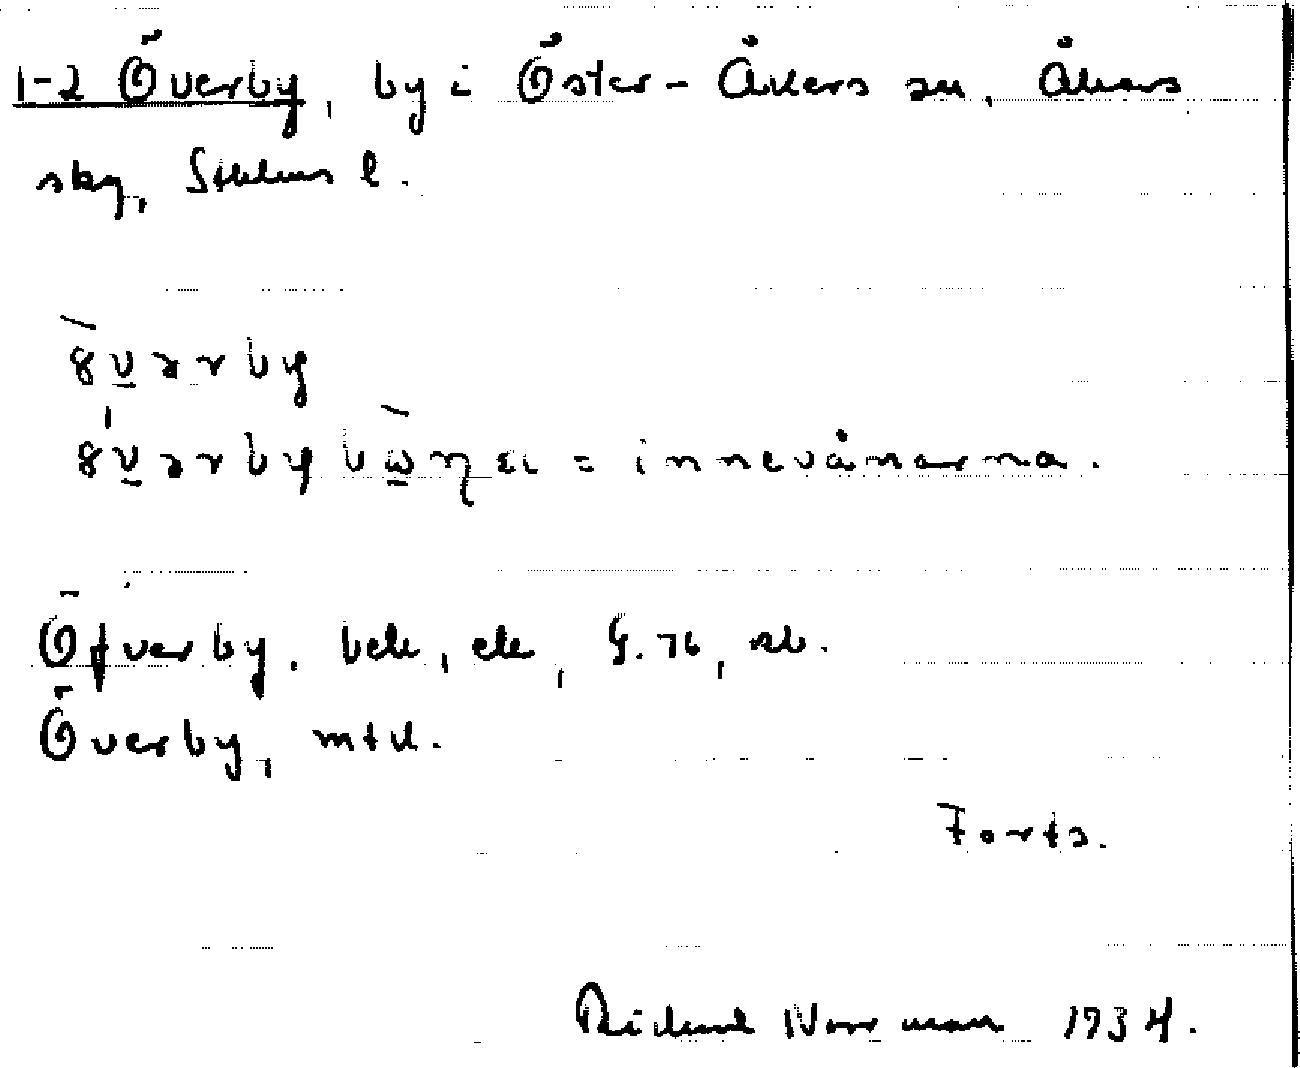 1-2 Överby, by i Öster-Åkers sn, Åkers
skg, Sthlms l.
innevånarna.
Öfverby. bek, ek, G. 76, sb.
Överby, mtl.
Forts.
Rickard Norrman 1934.